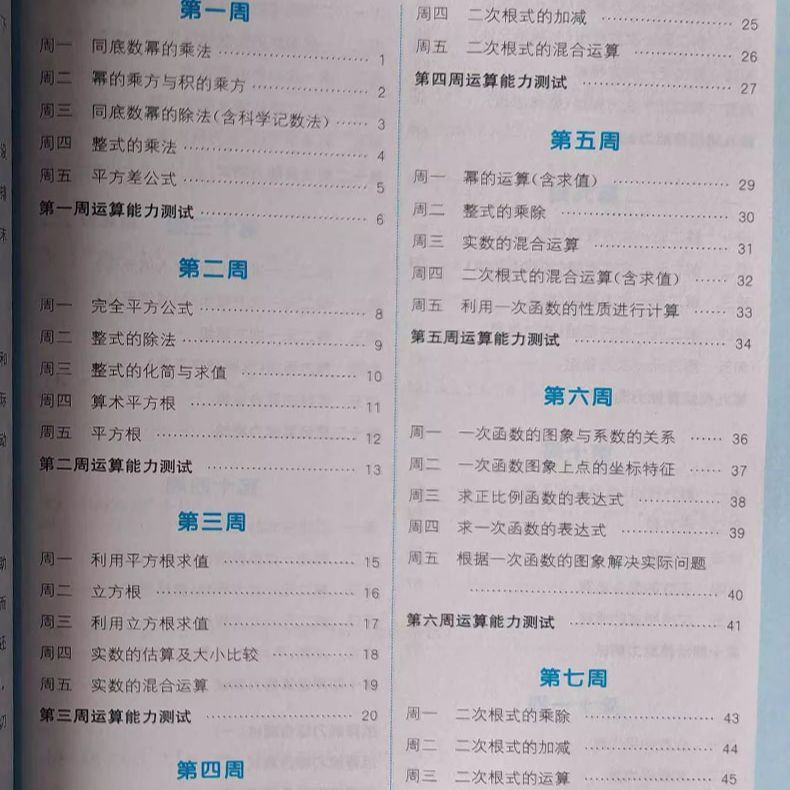 第一周
周一 同底数幂的乘法 1
周二 幂的乘方与积的乘方 2
周三 同底数幂的除法(含科学记数法) 3
周四 整式的乘法 4
周五 平方差公式 5
第一周运算能力测试 6
第二周
周一 完全平方公式 8
周二 整式的除法 9
周三 整式的化简与求值 10
周四 算术平方根 11
周五 平方根 12
第二周运算能力测试 13
第三周
周一 利用平方根求值 15
周二 立方根 16
周三 利用立方根求值 17
周四 实数的估算及大小比较 18
周五 实数的混合运算 19
第三周运算能力测试 20
第四周
周四 二次根式的加减 25
周五 二次根式的混合运算 26
第四周运算能力测试 27
第五周
周一 幂的运算(含求值) 29
周二 整式的乘除 30
周三 实数的混合运算 31
周四 二次根式的混合运算(含求值) 32
周五 利用一次函数的性质进行计算 33
第五周运算能力测试 34
第六周
周一 一次函数的图象与系数的关系 36
周二 一次函数图象上点的坐标特征 37
周三 求正比例函数的表达式 38
周四 求一次函数的表达式 39
周五 根据一次函数的图象解决实际问题
40
第六周运算能力测试 41
第七周
周一 二次根式的乘除 43
周二 二次根式的加减 44
周三 二次根式的运算 45